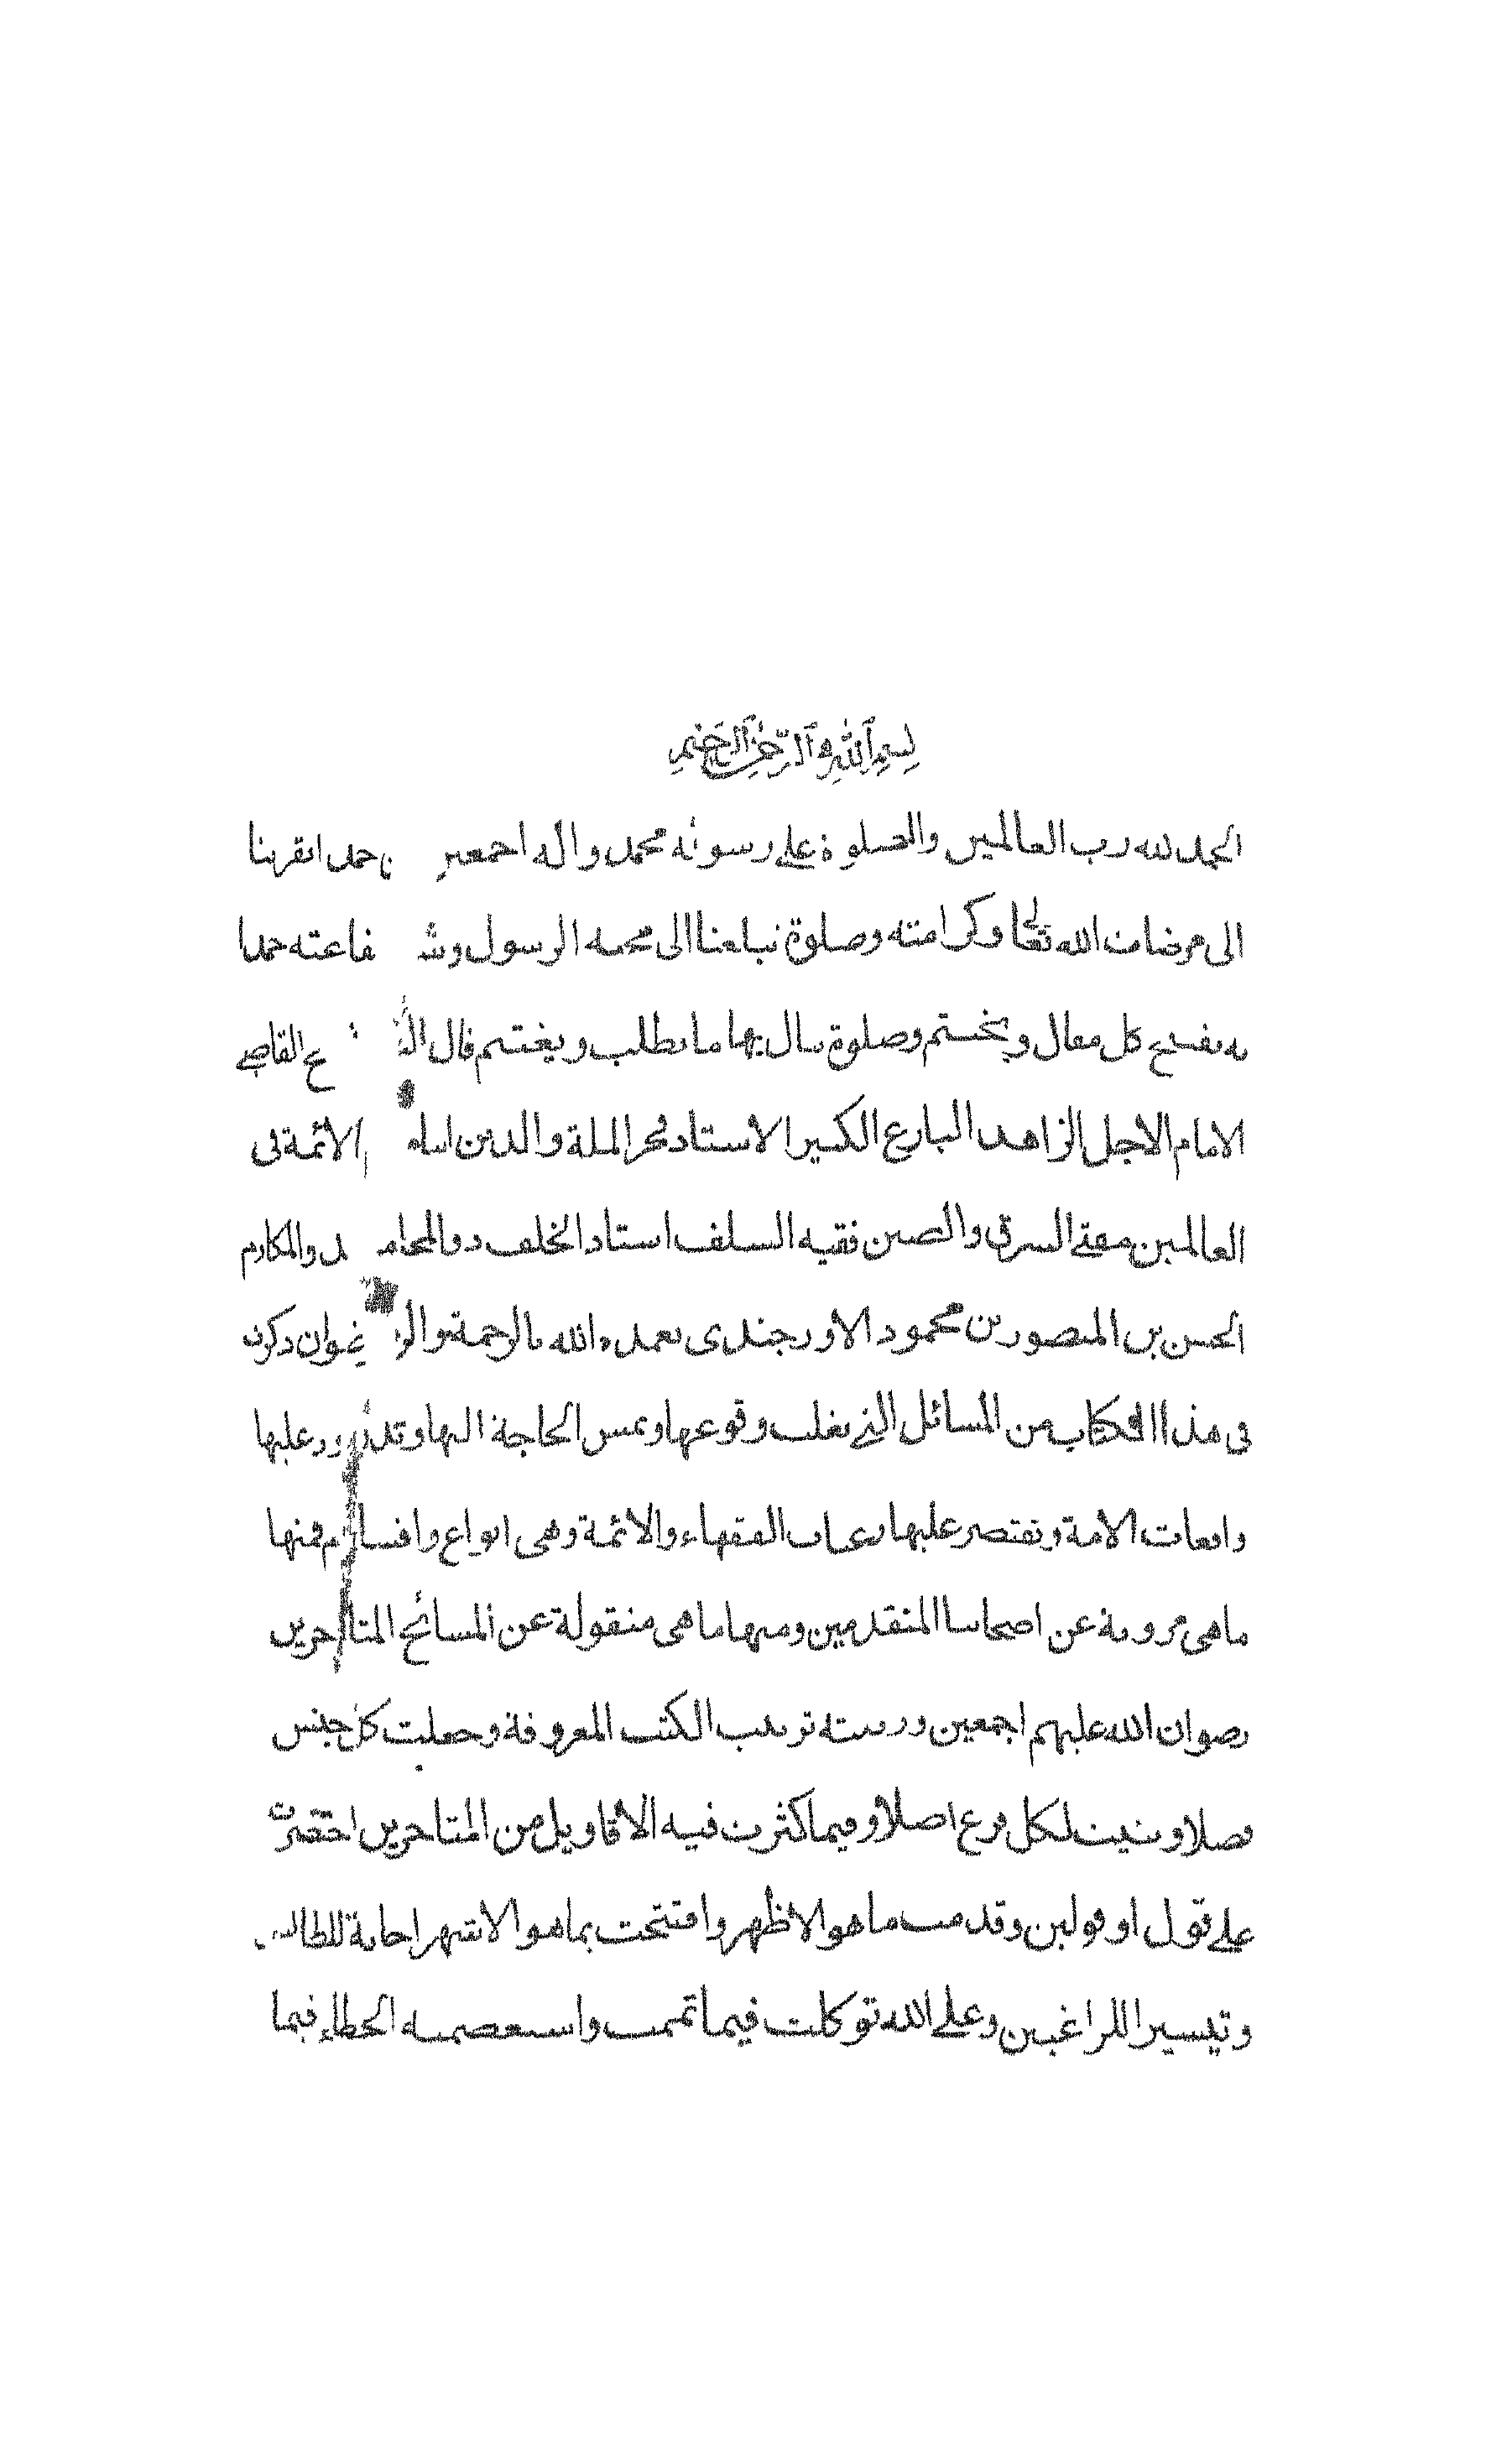 بسم الله الرحمن الرحيم
الحمد لله رب العالمين والصلوة على رسوله محمد واله اجمعين حمدا يقربنا
الى مرضات الله تعالى وكرامته وصلوة تبلغنا الى محمد الرسول وشفاعته حمدا
به يفتتح كل مقال ويختتم وصلوة ينال بها ما يطلب ويغتنم قال القاضي
الامام الاجل الزاهد البارع الكبير الاستاد فخر الملة والدين استاد الائمة في
العالمين مفتي الشرق والصين فقيه السلف استاد الخلف ذو المحامد والمكارم
الحسن بن المنصور بن محمود الاورجندي تغمده الله بالرحمة والرضوان ذكرت
في هذا الكتاب من المسائل التي يغلب وقوعها وتمس الحاجة اليها وتدور عليها
واقعات الامة وتقتصر عليها رغبات الفقهاء والائمة وهي انواع واقسام فمنها
ما هي مروية عن اصحابنا المتقدمين ومنها ما هي منقولة عن المشائخ المتاخرين
رضوان الله عليهم اجمعين ورتبته ترتيب الكتب المعروفة وجعلت لكل جنس
فصلا وبينت لكل فرع اصلا وفيما كثرت فيه الاقاويل من المتاخرين اختصرت
على قول او قولين وقدمت ما هو الاظهر وافتتحت بما هو الاشهر اجابة للطالبين
وتيسيرا للراغبين وعلى الله توكلت فيما تممت واستعصمته الخطاء فيما